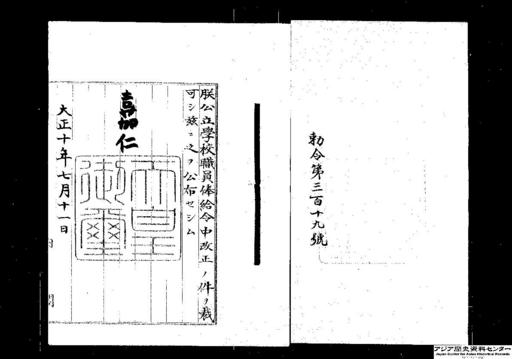 勅令第三百十九號
朕公立學校職員俸給令中改正ノ件ヲ裁
可シ茲ニ之ヲ公布セシム
嘉仁
天皇
御璽
大正十年七月十一日
内閣
アジア歴史資料センター
Japan Center for Asian Historical Records